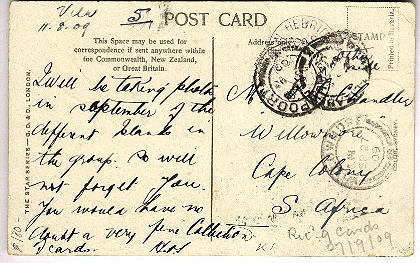 Vila
11.8.09
5
POST CARD
This Space may be used for
correspondence if sent anywhere within
the Commonwealth, New Zealand,
or Great Britain.
STAMP
Printed in
THE STAR SERIES — G.D. & D., LONDON.
I will be taking photos
in september of the
different Islands in
the group. so will
not forget you.
You would have no
doubt a very fine Collection
of cards.
M Chandler
Willowmore
Cape Colony
S. Africa
Rec. 9 Cards
7/9/09